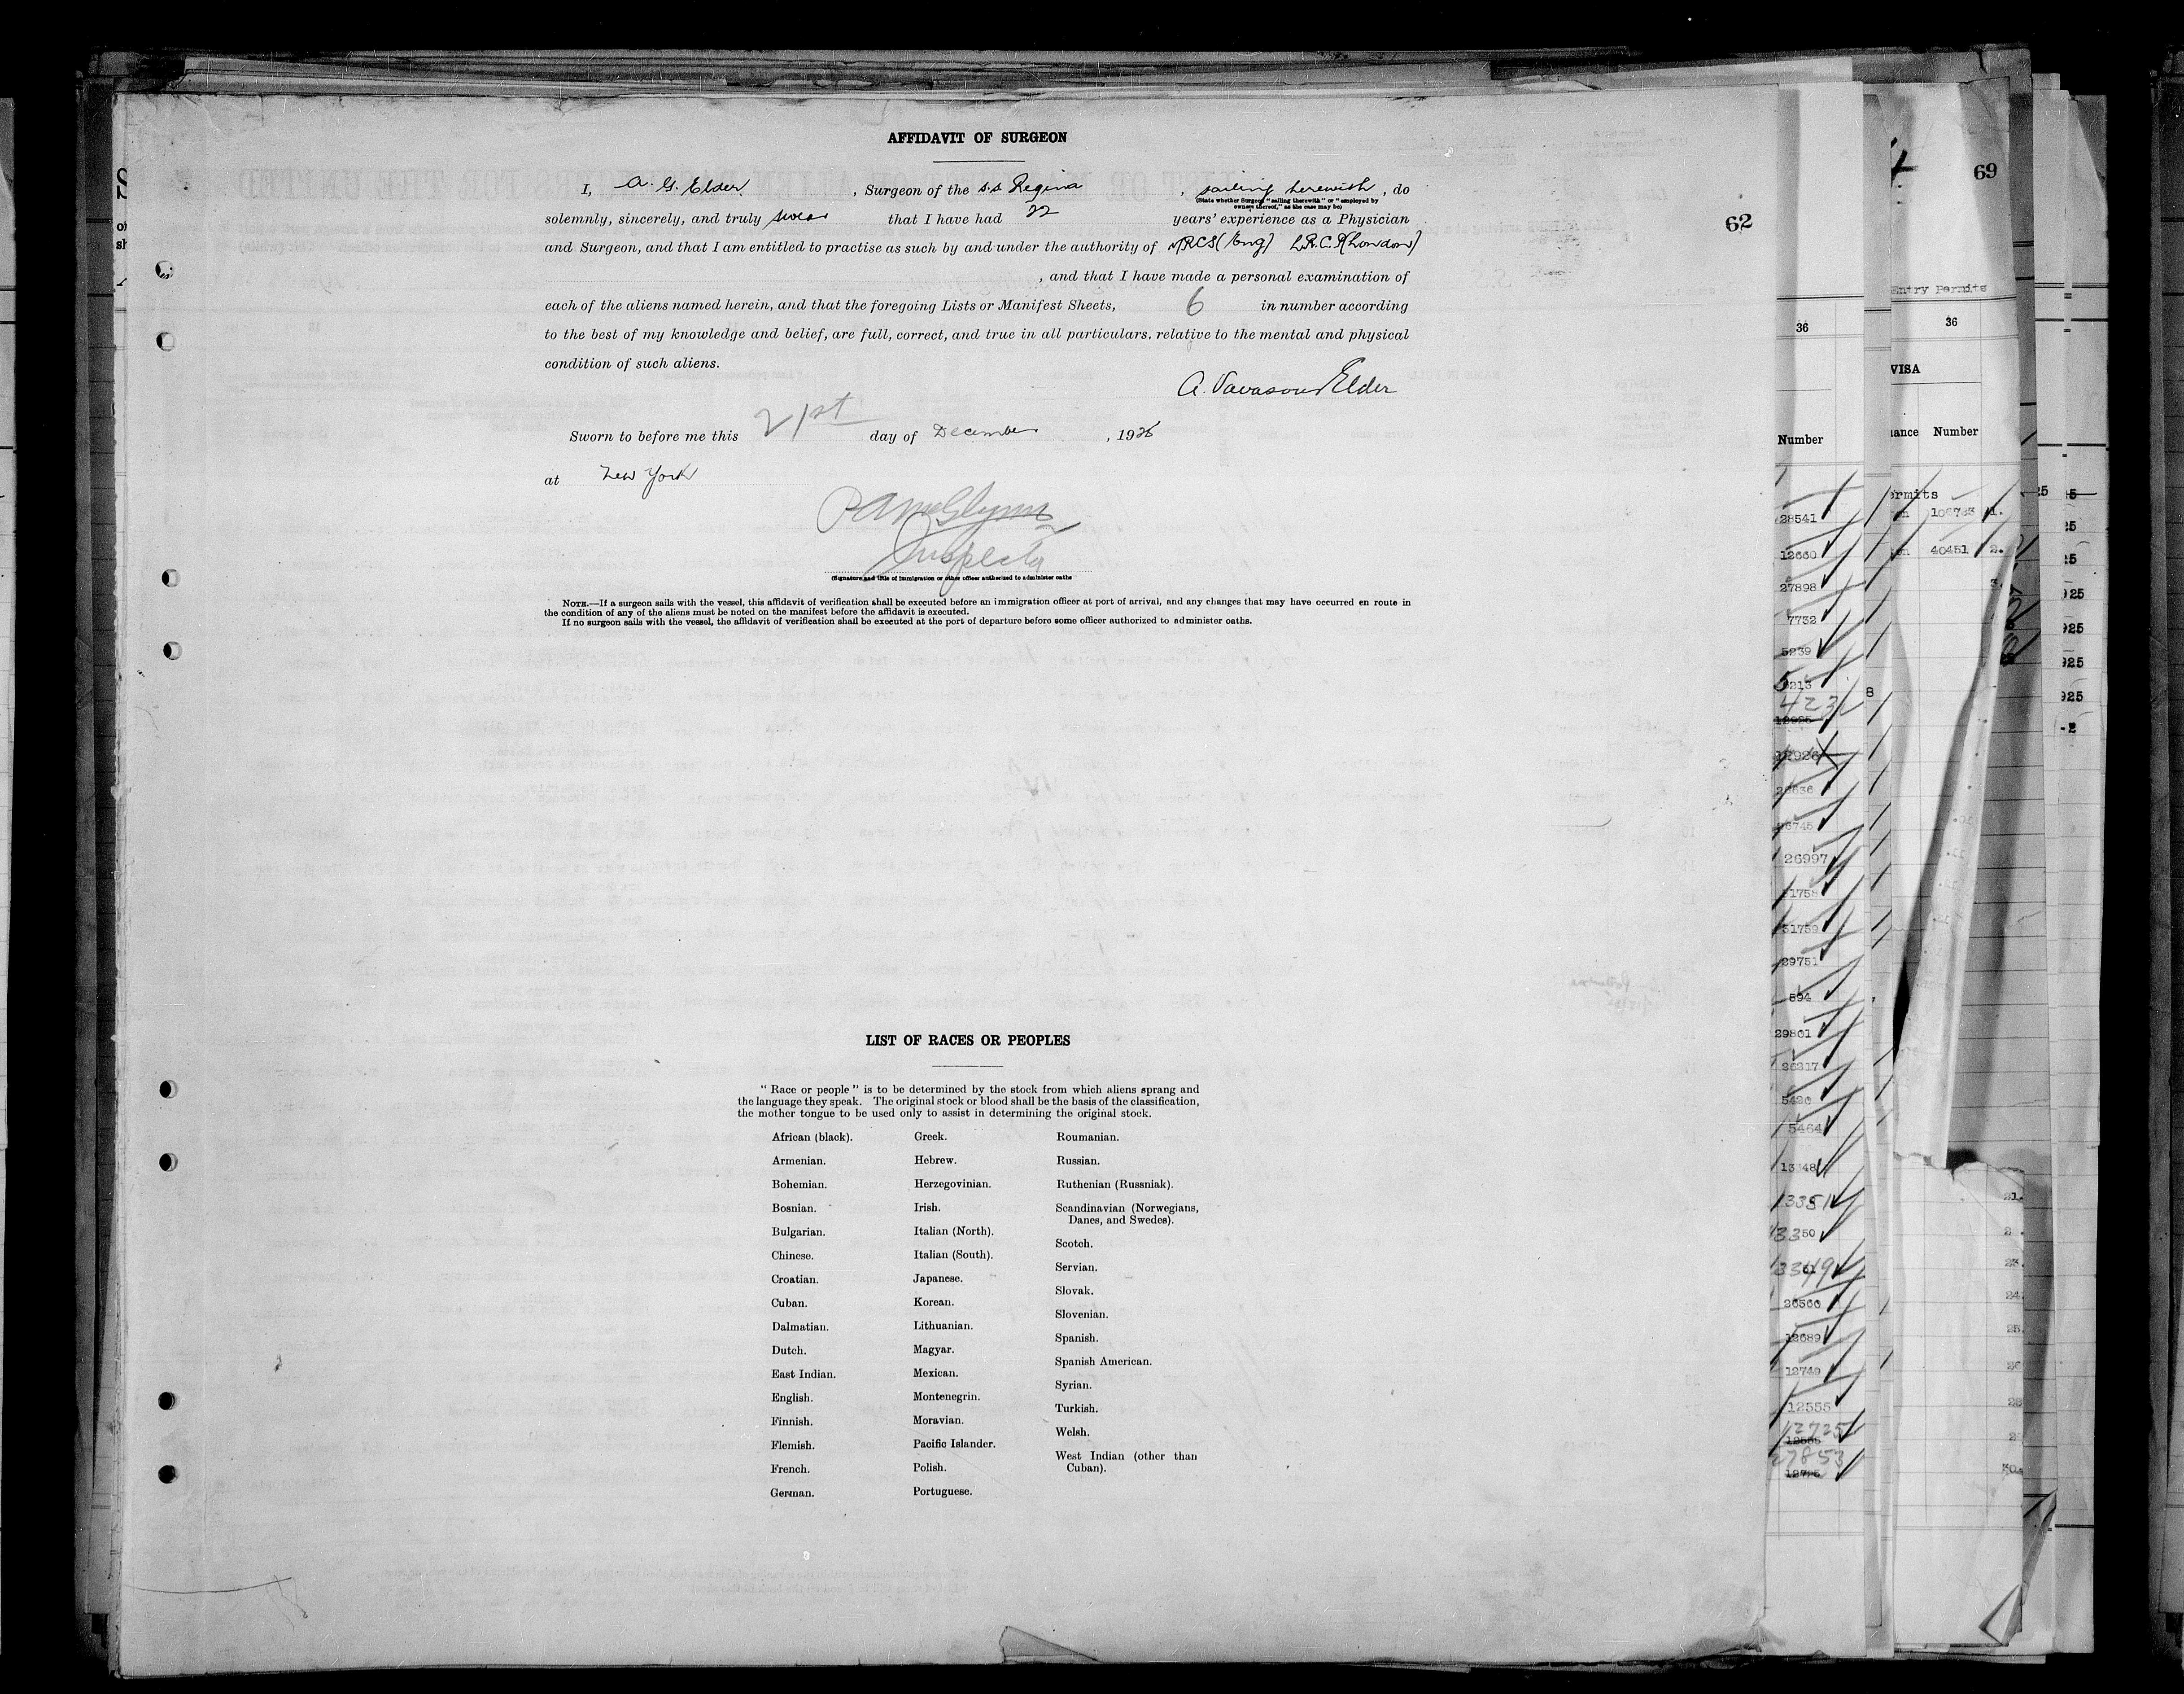 AFFIDAVIT OF SURGEON
I, A. G. Elder, Surgeon of the s.s. Regina, sailing herewith, do
(State whether Surgeon "sailing therewith" or "employed by
owners thereof," as the case may be)
solemnly, sincerely, and truly swear that I have had 22 years' experience as a Physician
and Surgeon, and that I am entitled to practise as such by and under the authority of MRCS (Eng) L.R.C.P (London)
, and that I have made a personal examination of
each of the aliens named herein, and that the foregoing Lists or Manifest Sheets, 6 in number according
to the best of my knowledge and belief, are full, correct, and true in all particulars, relative to the mental and physical
condition of such aliens.
A. Vavasour Elder
Sworn to before me this 21st day of December, 1925
at New York
Inspector
(Signature and title of immigration or other officer authorized to administer oaths
NOTE.—If a surgeon sails with the vessel, this affidavit of verification shall be executed before an immigration officer at port of arrival, and any changes that may have occurred en route in
the condition of any of the aliens must be noted on the manifest before the affidavit is executed.
If no surgeon sails with the vessel, the affidavit of verification shall be executed at the port of departure before some officer authorized to administer oaths.
LIST OF RACES OR PEOPLES
"Race or people" is to be determined by the stock from which aliens sprang and
the language they speak. The original stock or blood shall be the basis of the classification,
the mother tongue to be used only to assist in determining the original stock.
African (black).
Armenian.
Bohemian.
Bosnian.
Bulgarian.
Chinese.
Croatian.
Cuban.
Dalmatian.
Dutch.
East Indian.
English.
Finnish.
Flemish.
French.
German.
Greek.
Hebrew.
Herzegovinian.
Irish.
Italian (North).
Italian (South).
Japanese.
Korean.
Lithuanian.
Magyar.
Mexican.
Montenegrin.
Moravian.
Pacific Islander.
Polish.
Portuguese.
Roumanian.
Russian.
Ruthenian (Russniak).
Scandinavian (Norwegians,
Danes, and Swedes).
Scotch.
Servian.
Slovak.
Slovenian.
Spanish.
Spanish American.
Syrian.
Turkish.
Welsh.
West Indian (other than
Cuban).
62
36
Number
28541
12660
27898
7732
5239
26997
31759
29751
594
29801
26317
5426
5464
26566
12689
12740
12555
12725
27853
69
Entry Permits
36
VISA
Number
40451 2.